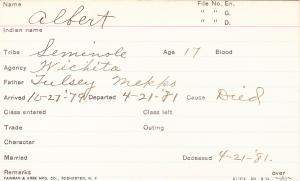 Name Albert File No. En.
" " G.
Indian name " " D.
Tribe Seminole Age 17 Blood
Agency Wichita
Father Tulsey Mekko
Arrived 10-27-'79 Departed 4-21-'81 Cause Died
Class entered Class left
Trade Outing
Character
Married Deceased 4-21-'81.
Remarks over
YAWMAN & ERBE MFG. CO., ROCHESTER, N. Y.